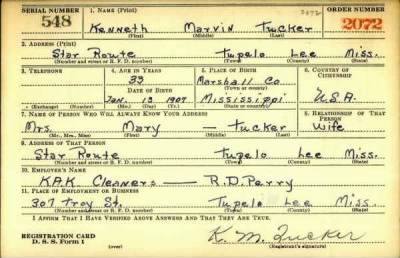 SERIAL NUMBER 1. NAME (Print) ORDER NUMBER
548 Kenneth Marvin Tucker 2072
(First) (Middle) (Last)
2. ADDRESS (Print)
Star Route Tupelo Lee Miss.
(Number and street or R. F. D. number) (Town) (County) (State)
3. TELEPHONE 4. AGE IN YEARS 5. PLACE OF BIRTH 6. COUNTRY OF CITIZENSHIP
33 Marshall Co
DATE OF BIRTH (Town or county)
Jan. 13 1907 Mississippi U.S.A.
(Exchange) (Number) (Mo.) (Day) (Yr.) (State or country)
7. NAME OF PERSON WHO WILL ALWAYS KNOW YOUR ADDRESS 8. RELATIONSHIP OF THAT PERSON
Mrs. Mary — Tucker Wife
(Mr., Mrs., Miss) (First) (Middle) (Last)
9. ADDRESS OF THAT PERSON
Star Route Tupelo Lee Miss.
(Number and street or R. F. D. number) (Town) (County) (State)
10. EMPLOYER'S NAME
K&K Cleaners — R.D. Perry
11. PLACE OF EMPLOYMENT OR BUSINESS
307 Troy St. Tupelo Lee Miss.
(Number and street or R. F. D. number) (Town) (County) (State)
I AFFIRM THAT I HAVE VERIFIED ABOVE ANSWERS AND THAT THEY ARE TRUE.
REGISTRATION CARD
D. S. S. Form 1 (over) K. M. Tucker
(Registrant's signature)